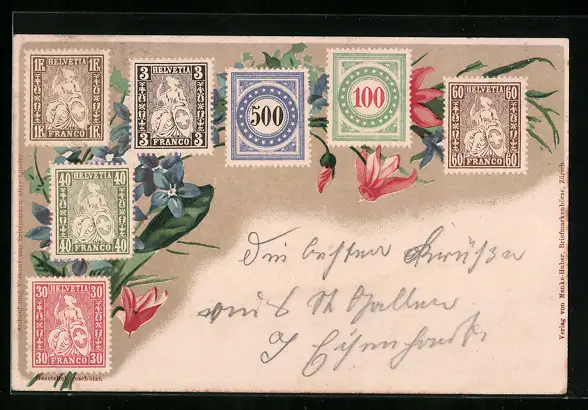 1R HELVETIA 1R
1R FRANCO 1R
3 HELVETIA 3
3 FRANCO 3
500
100
60 HELVETIA 60
60 FRANCO 60
40 HELVETIA 40
40 FRANCO 40
30 HELVETIA 30
30 FRANCO 30
Gesetzlich geschützt.
Die besten Grüße
St Gallen
Verlag von Menke-Huber, Briefmarkenbörse, Zürich